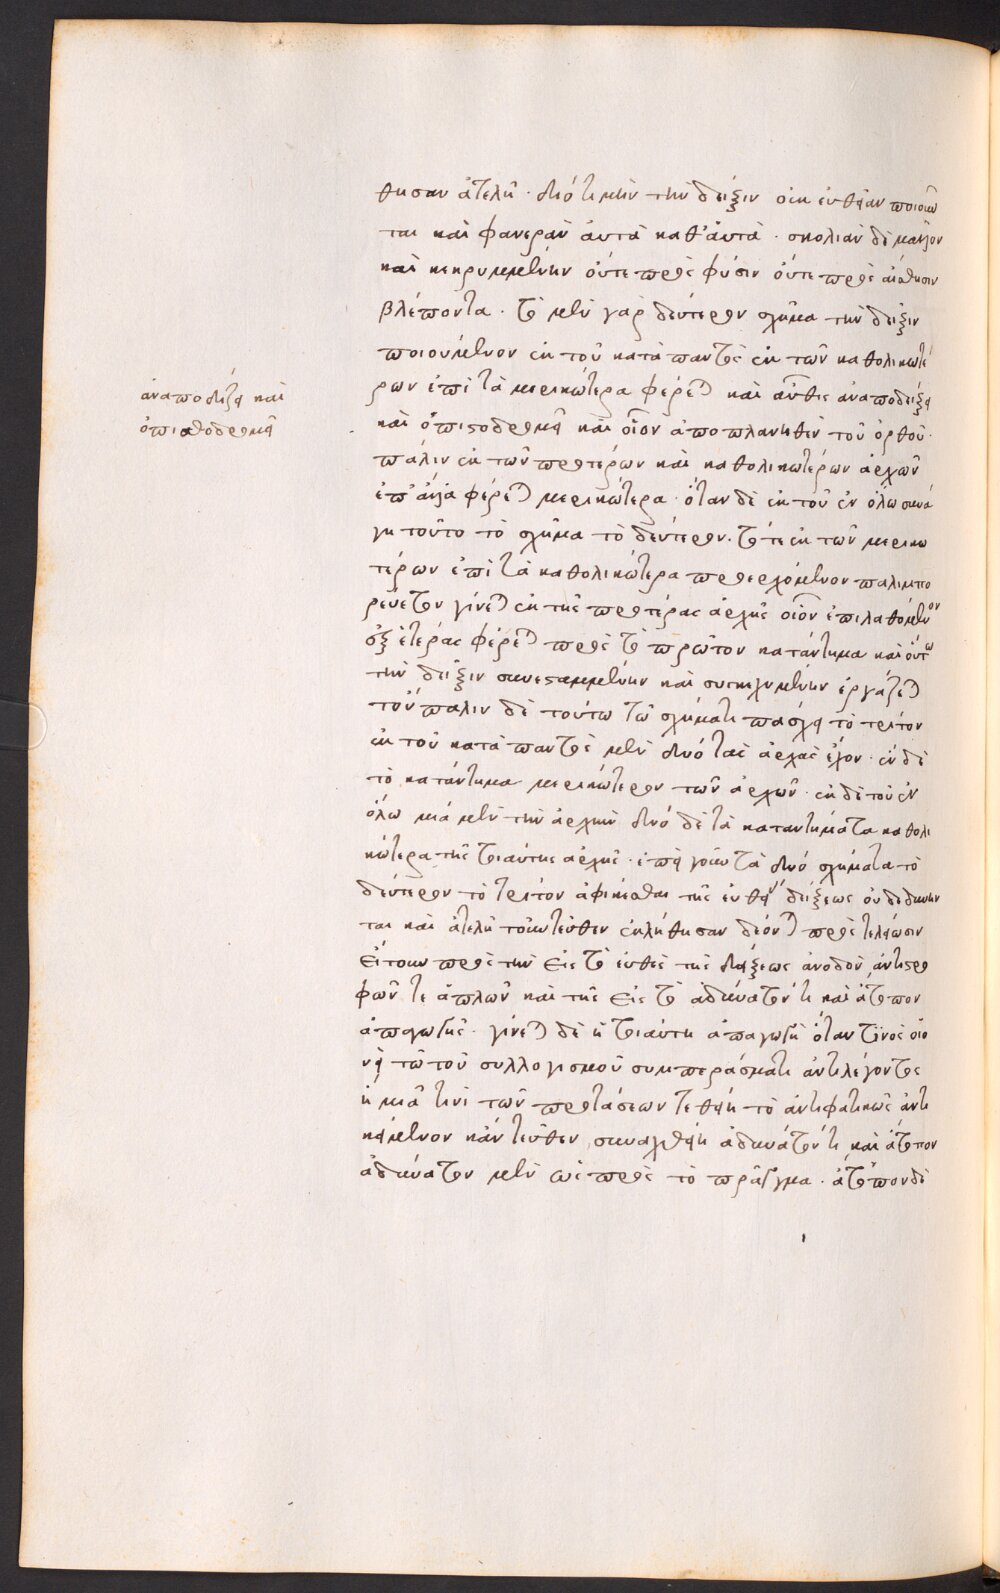 θησαν ἀτελῆ · διότι μὴν τὴν δεῖξιν οὐκ εὐθεῖαν ποιοῦν
ται καὶ φανερὰν αὐτὰ καθ' αὑτὰ · σκολιὰν δὲ μᾶλλον
καὶ κεκρυμμένην οὔτε πρὸς φύσιν οὔτε πρὸς αἴσθησιν
βλέποντα · τὸ μὲν γὰρ δεύτερον σχῆμα τὴν δεῖξιν
ποιούμενον ἐκ τοῦ κατὰ παντὸς ἐκ τῶν καθολικωτέ
ρων ἐπὶ τὰ μερικώτερα φέρεται καὶ αὖθις ἀναποδείζει
ἀναποδίζει καὶ
καὶ ὀπισοδρομεῖ καὶ οἷον ἀποπλανηθὲν τοῦ ὀρθοῦ ·
ὀπισθοδρομεῖ
πάλιν ἐκ τῶν προτέρων καὶ καθολικωτέρων ἀρχῶν
ἐπ' ἄλλα φέρεται μερικώτερα · ὅταν δὲ ἐκ τοῦ ἐν ὅλω συνά
γη τοῦτο τὸ σχῆμα τὸ δεύτερον · τότε ἐκ τῶν μερικω
τέρων ἐπὶ τὰ καθολικώτερα προερχόμενον παλιμπο
ρεύετον γίνεται ἐκ τῆς προτέρας ἀρχῆς οἷον ἐπιλαθόμενον
ἐξ ἑτέρας φέρεται πρὸς τὸ πρῶτον κατάντημα καὶ οὕτω
τὴν δεῖξιν συνεσαμμένην καὶ συγκεχυμένην ἐργάζεται
τοὔμπαλιν δὲ τούτω τῶ σχήματι πάσχει τὸ τρίτον
ἐκ τοῦ κατὰ παντὸς μὲν δύο τὰς ἀρχὰς ἔχον · ἓν δὲ
τὸ κατάντημα μερικώτερον τῶν ἀρχῶν · ἐκ δὲ τοῦ ἐν
ὅλω μιὰ μὲν τὴν ἀρχὴν δύο δὲ τὰ καταντήματα καθολι
κώτερα τῆς τοιαύτης ἀρχῆς · ἐπεὶ γοῦν τὰ δύο σχήματα τὸ
δεύτερον τὸ τρίτον ἀφικέσθαι τῆς εὐθείας δείξεως οὐ δεδύνην
ται καὶ ἀτελῆ τοὐντεῦθεν ἐκλήθησαν δέονται πρὸς τελείωσιν
εἴτουν πρὸς τὴν εἰς τὸ εὐθὲς τῆς δείξεως ἄνοδον, ἀντιστρο
φῶν τε ἁπλῶν καὶ τῆς εἰς τὸ ἀδύνατόν τε καὶ ἄτοπον
ἀπαγωγῆς · γίνεται δὲ ἡ τοιαύτη ἀπαγωγὴ ὅταν τινὸς οἱο
νεὶ τῶ τοῦ συλλογισμοῦ συμπεράσματι ἀντιλέγοντος
ἢ μιᾶ τινὶ τῶν προτάσεων τεθείη τὸ ἀντιφατικῶς ἀντι
κείμενον κἀντεῦθεν συναχθείη ἀδύνατόν τε καὶ ἄτοπον
ἀδύνατον μὲν ὡς πρὸς τὸ πρᾶγμα · ἄτοπον δὲ